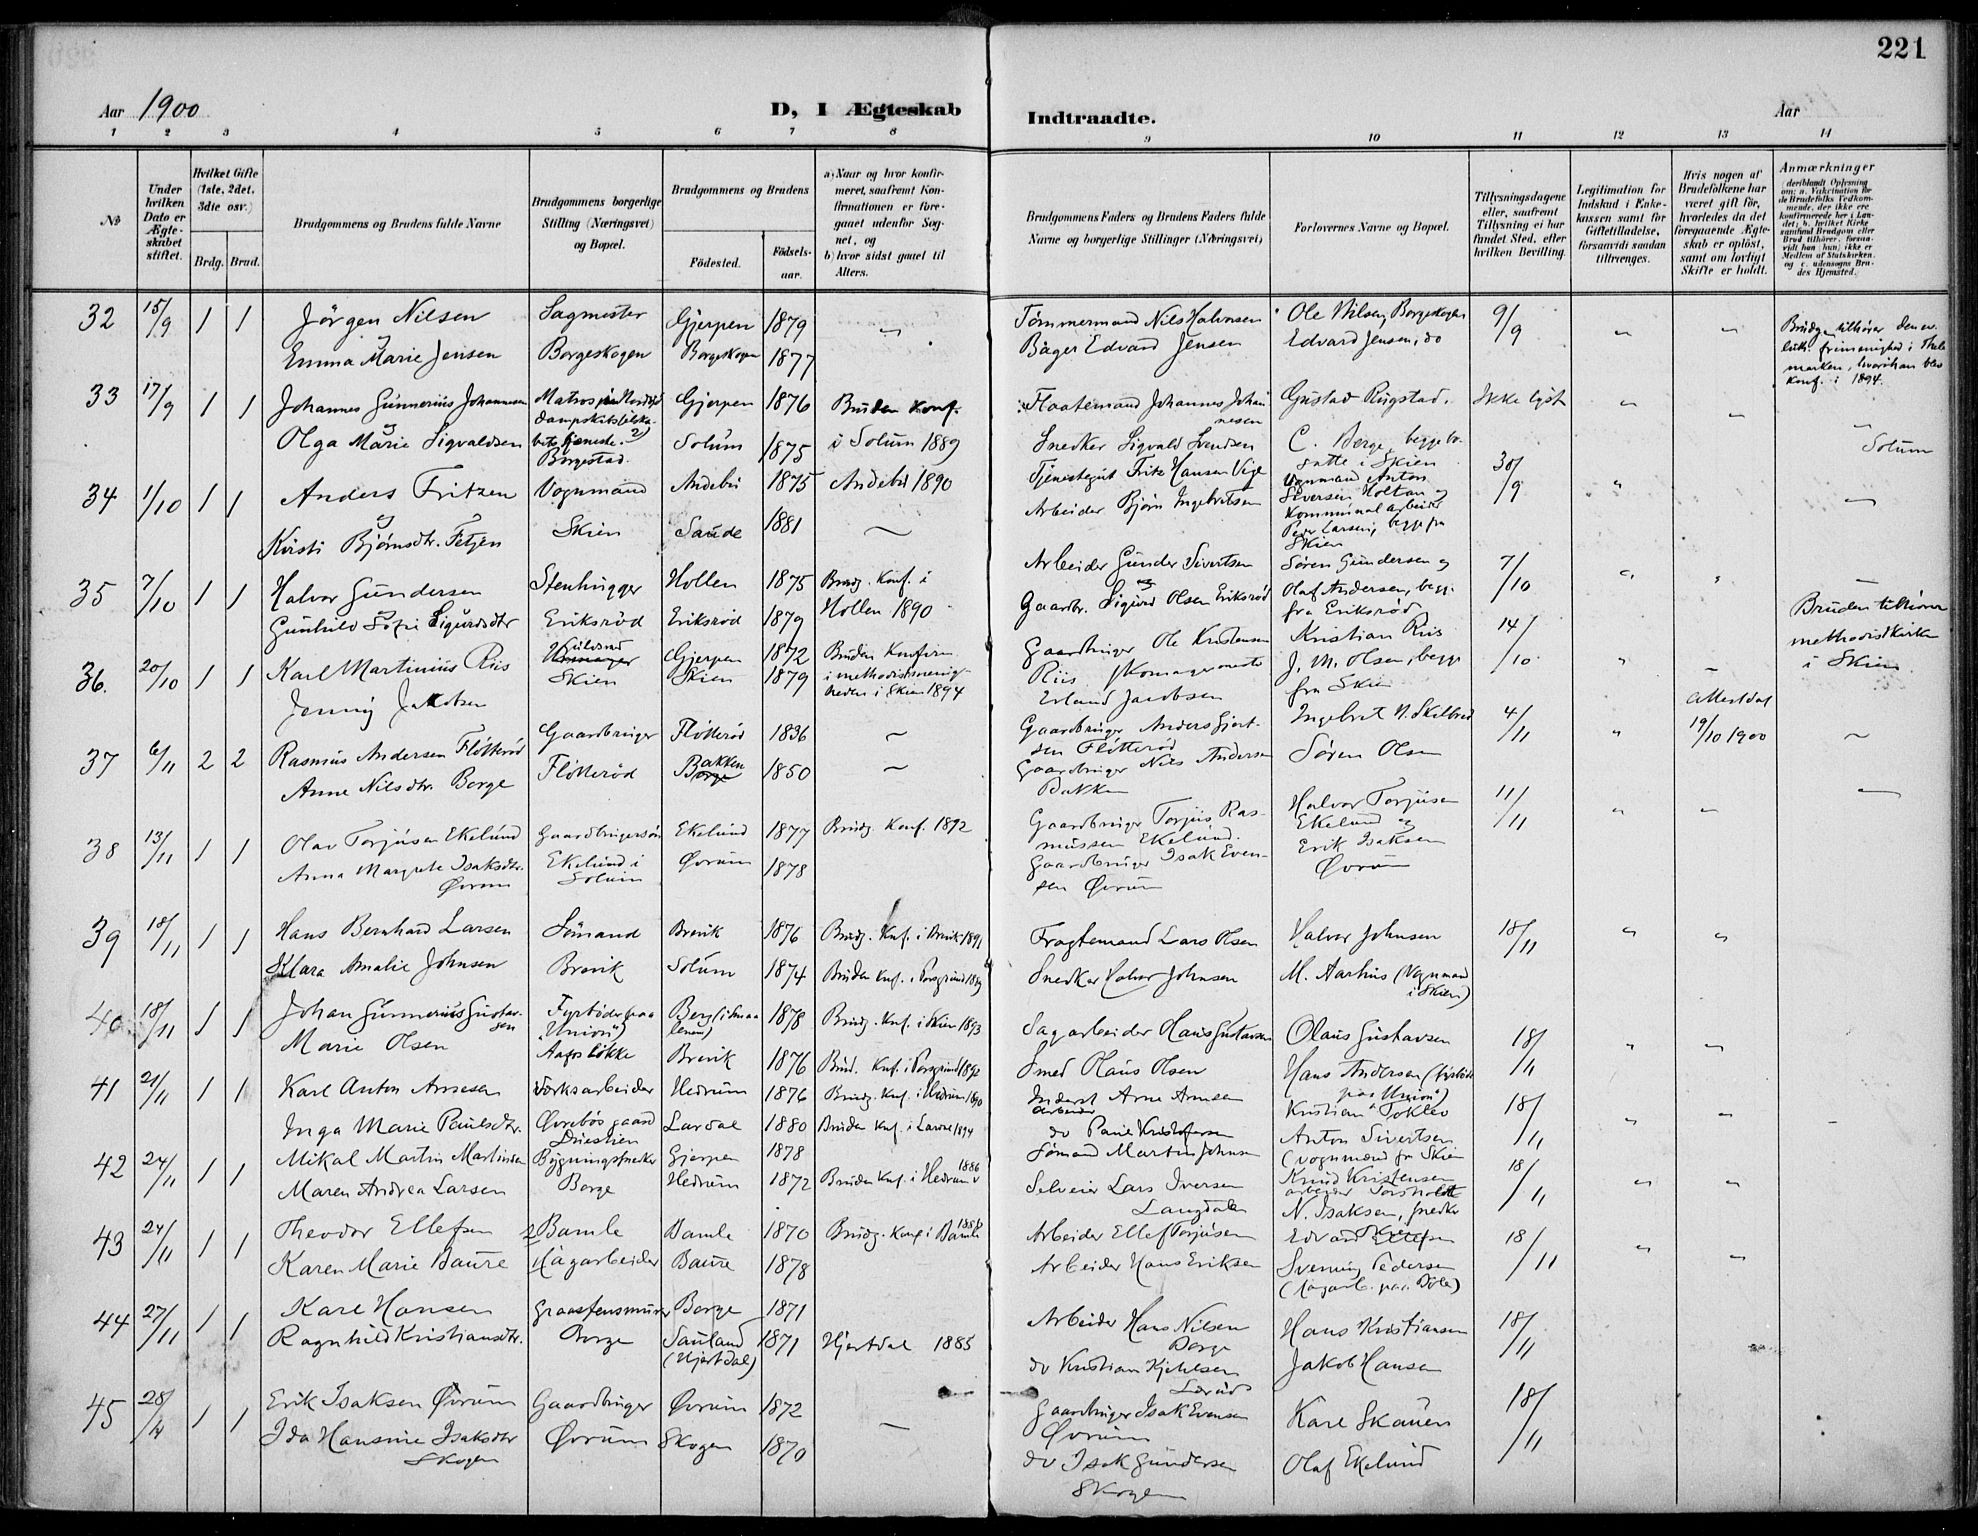 221
Aar 1900
D, I Ægteskab
Indtraadte.
Aar
1 2 3 4 5 6 7 8 9 10 11 12 13 14
No
Under hvilken Dato er Ægteskabet stiftet.
Hvilket Gifte (1ste, 2det, 3die osv.)
Brdg. Brud.
Brudgommens og Brudens fulde Navne
Brudgommens borgerlige Stilling (Næringsvei) og Bopæl.
Brudgommens og Brudens
Fødested.
Fødselsaar.
a) Naar og hvor konfirmeret, saafremt Konfirmationen er foregaaet udenfor Sognet, og
b) hvor sidst gaaet til Alters.
Brudgommens Faders og Brudens Faders fulde Navne og borgerlige Stillinger (Næringsvei)
Forlovernes Navne og Bopæl.
Tillysningsdagene eller, saafremt Tillysning ei har fundet Sted, efter hvilken Bevilling.
Legitimation for Indskud i Enkekassen samt for Giftetilladelse, forsaavidt saadan tiltrænges.
Hvis nogen af Brudefolkene har været gift før, hvorledes da det foregaaende Ægteskab er opløst, samt om lovligt Skifte er holdt.
Anmærkninger
32 15/9 1 1 Jörgen Nilsen Sagmester Gjerpen 1879 Tømmermand Nils Halvorsen Ole Nilsen, Borgeskogen 9/9
Emma Marie Jensen Borgeskogen Borgeskogen 1877 Edvard Jensen Edvard Jensen, do
Brudg. tilhører den ev. luth. frimenighed i Thelemarken, hvori han blev konf. i 1894.
33 17/9 1 1 Johannes Gunnerius Johannesen Gjerpen 1876 Bruden konf. Johannes Johannesen Gustad Rugstad. Ikke lyst
Olga Marie Sigvaldsen Borgestad. Solum 1875 i Solum 1889 Snedker Sigvald Svendsen C. Berge, begge bosatte i Skien Solum
34 1/10 1 1 Anders Fritzen Vognmand Andebu 1875 Andebu 1890 Tjenestegut Fritz Hansen Vognmand Anton Siversen Holtan og 30/9
Kirsti Bjørnsdtr. Fetjen Skien Saude 1881 Arbeider Bjørn Ingebretsen Kommunalarbeider Peder Larsen, begge fra Skien
35 7/10 1 1 Halvor Gundersen Stenhugger Hollen 1875 Brudg. Konf. i Arbeider Gunder Sivertsen Søren Gundersen og 7/10
Gunhild Sofie Sigurdsdtr Eriksröd Eriksröd 1879 Hollen 1890 Gaardbr. Sigurd Olsen Eriksröd Olaf Andersen, begge fra Eriksröd
36. 20/10 1 1 Karl Martinius Riis Gjerpen 1872 Gaardbruger Ole Kristensen Riis Kristian Riis 14/10
Jenny Jakobsen Skien Skien 1879 Bruden Konfirm. i methodistmenigheden i Skien 1894 Erland Jacobsen J. M. Olsen, begge fra Skien
Bruden tilhører methodistkirken i Skien
37 6/11 2 2 Rasmus Andersen Flötteröd Gaardbruger Flötteröd 1836 Gaardbruger Anders Flötteröd Ingebret N. 4/11 19/10 1900
Anne Nilsdtr. Borge Flötteröd Bakken 1850 Gaardbruger Nils Andersen Bakken Søren Olsen
38 13/11 1 1 Olav Torjusen Ekelund Gaardbrugersøn Ekelund 1877 Brudg. Konf. 1892 Gaardbruger Torjus Rasmussen Ekelund. Halvor Torjusen Ekelund og 11/11
Anna Margrete Isaksdtr. Øvrum Ekelund i Solum Øvrum 1878 Gaardbruger Isak Evensen Øvrum Erik Isaksen Øvrum
39 18/11 1 1 Hans Bernhard Larsen Sömand Brevik 1876 Brudg. Konf. i Brevik 1891 Fragtemand Lars Olsen Halvor Johnsen 18/11
Klara Amalie Johnsen Brevik Solum 1874 Bruden Konf. i Porsgrund 1889 Snedker Halvor Johnsen M. Aarhus (Vognmand i Skien)
40 18/11 1 1 Johan Gunnerius Gustavsen Fyrböder paa "Union" Berg (i Smaalenene) 1878 Brudg. Konf. i Skien 1893 Sagarbeider Hans Gustavsen Olaus Gustavsen 18/11
Marie Olsen Brevik 1876 Brud. Konf. i Porsgrund 1892 Smed Olaus Olsen Hans Andersen (fyrböder paa Union)
41 21/11 1 1 Karl Anton Arnesen Værksarbeider Hedrum 1876 Brudg. Konf. i Hedrum 1890 Inderst Arbeider Arne Arnesen Kristian 18/11
Inga Marie Paulsdtr. Lardal 1880 Bruden Konf. i Larvik 1894 do Paul Kristofersen Anton Sivertsen (vognmænd fr Skien
42 24/11 1 1 Mikal Martin Martinsen Bygningssnedker Gjerpen 1878 Sømand Martin Johnsen Knud Kristensen arbeider 18/11
Maren Andrea Larsen Borge Hedrum 1872 Bruden Konf. i Hedrum 1886 Selveier Lars Iversen Langdalen N. Isaksen, snedker Skien
43 24/11 1 1 Theodor Ellefsen Bamle Bamle 1870 Brudg. Konf. i Bamle 1886 Arbeider Ellef Torjusen Edvard Ellefsen 18/11
Karen Marie Baure Sagarbeider Baure 1878 Arbeider Hans Eriksen Svenning Pedersen
44 27/11 1 1 Karl Hansen Graastensmurer Borge 1871 Arbeider Hans Nilsen Borge Hans Kristiansen 18/11
Ragnhild Kristiansdtr. Borge Sauland (Hjertdal) 1871 Hjertdal 1885 do Kristian Kjetilsen Jakob Hansen
45 28/11 1 1 Erik Isaksen Øvrum Gaardbruger Øvrum 1872 Gaardbruger Isak Evensen Øvrum Karl Skauen 18/11
Ida Hansine Isaksdtr Skogen Øvrum Skogen 1870 do Isak Gundersen Skogen Olaf Ekelund